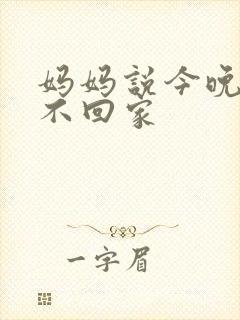 妈妈説今晚
不回家
一字眉